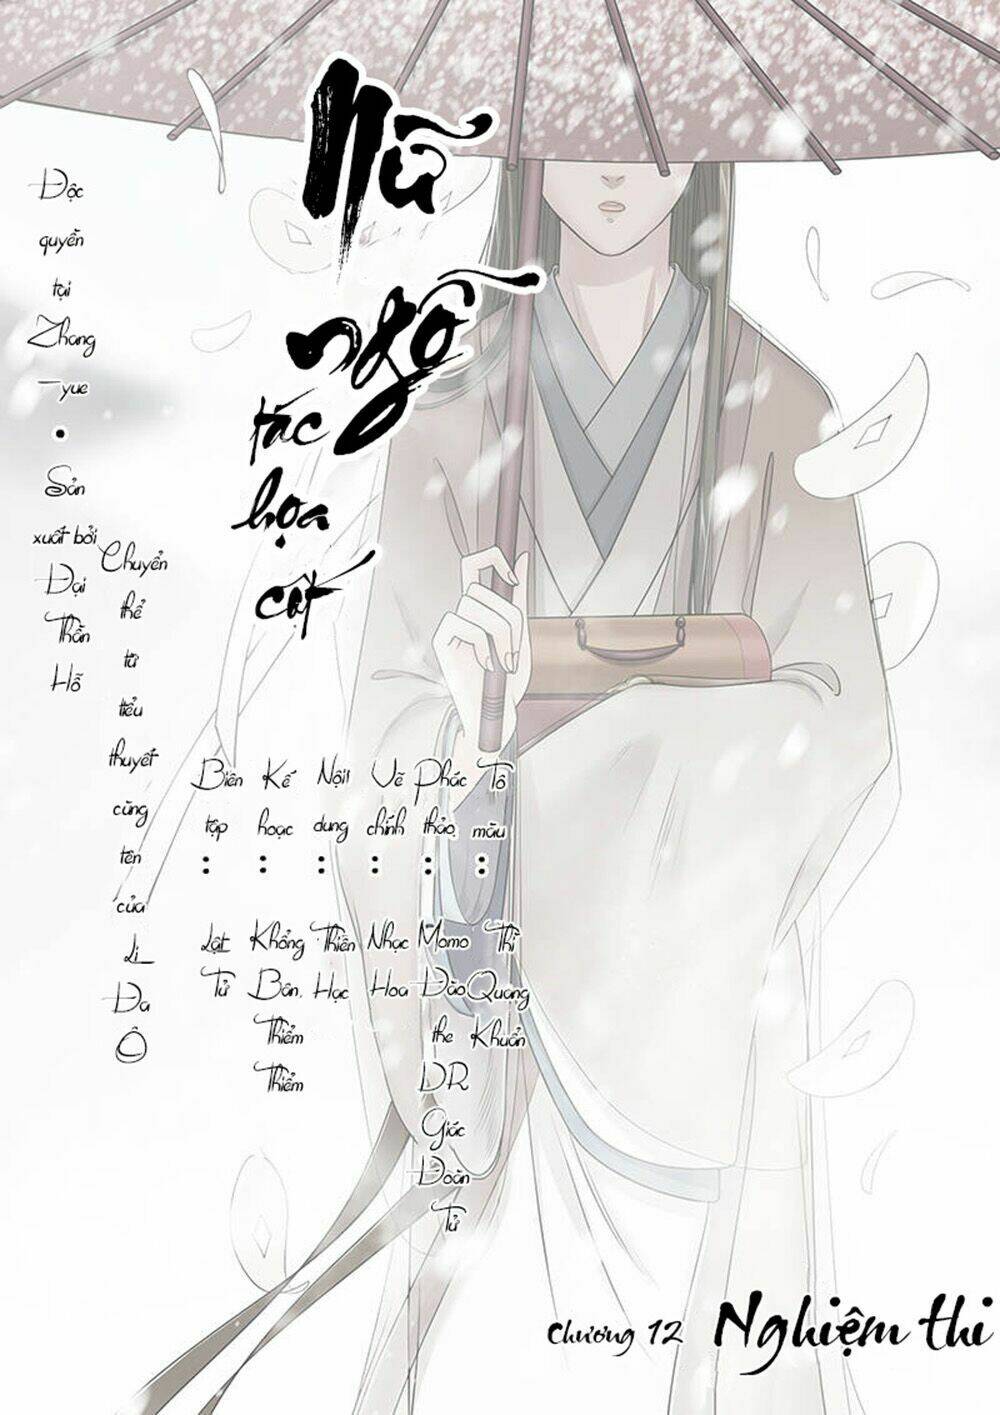 Nữ
ngỗ
tác
họa
cốt
Độc quyền tại Zhang-yue • Sản xuất bởi Đại Thần Hõ
Chuyển thể từ tiểu thuyết cùng tên của Li Đa Ô
Biên tập : Lật Tử
Kế hoạc : Khổng Bân, Thiểm Thiểm
Nội dung : Thiên Hạc
Vẽ chính : Nhạc Hoa
Phác thảo : Momo Đào the DR Giác Đoàn Tử
Tô màu : Thì Quang Khuẩn
Chương 12 Nghiệm thi